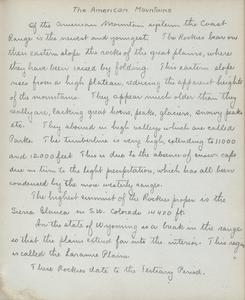 The American Mountains
Of the American Mountain system the Coast
Range is the newest and youngest. The Rockies bear on
their eastern slope the rocks of the great plains, where
they have been raised by folding. This eastern slope
rises from a high plateau, reducing the apparent heights
of the mountains. They appear much older than they
really are, lacking great horns, peaks, glaciers, snowy peaks
etc. They abound in high valleys which are called
Parks. The timberline is very high, extending to 11000
and 12000 feet. This is due to the absence of snow-caps
due in turn to the light precipitation, which has all been
condensed by the more westerly ranges.
The highest summit of the Rockies proper is the
Sierra Blanca in S.W. Colorado 14400 ft.
In the state of Wyoming is a break in the range
so that the plains extend far into the interior. This region
is called the Laramie Plains.
These Rockies date to the Tertiary Period.